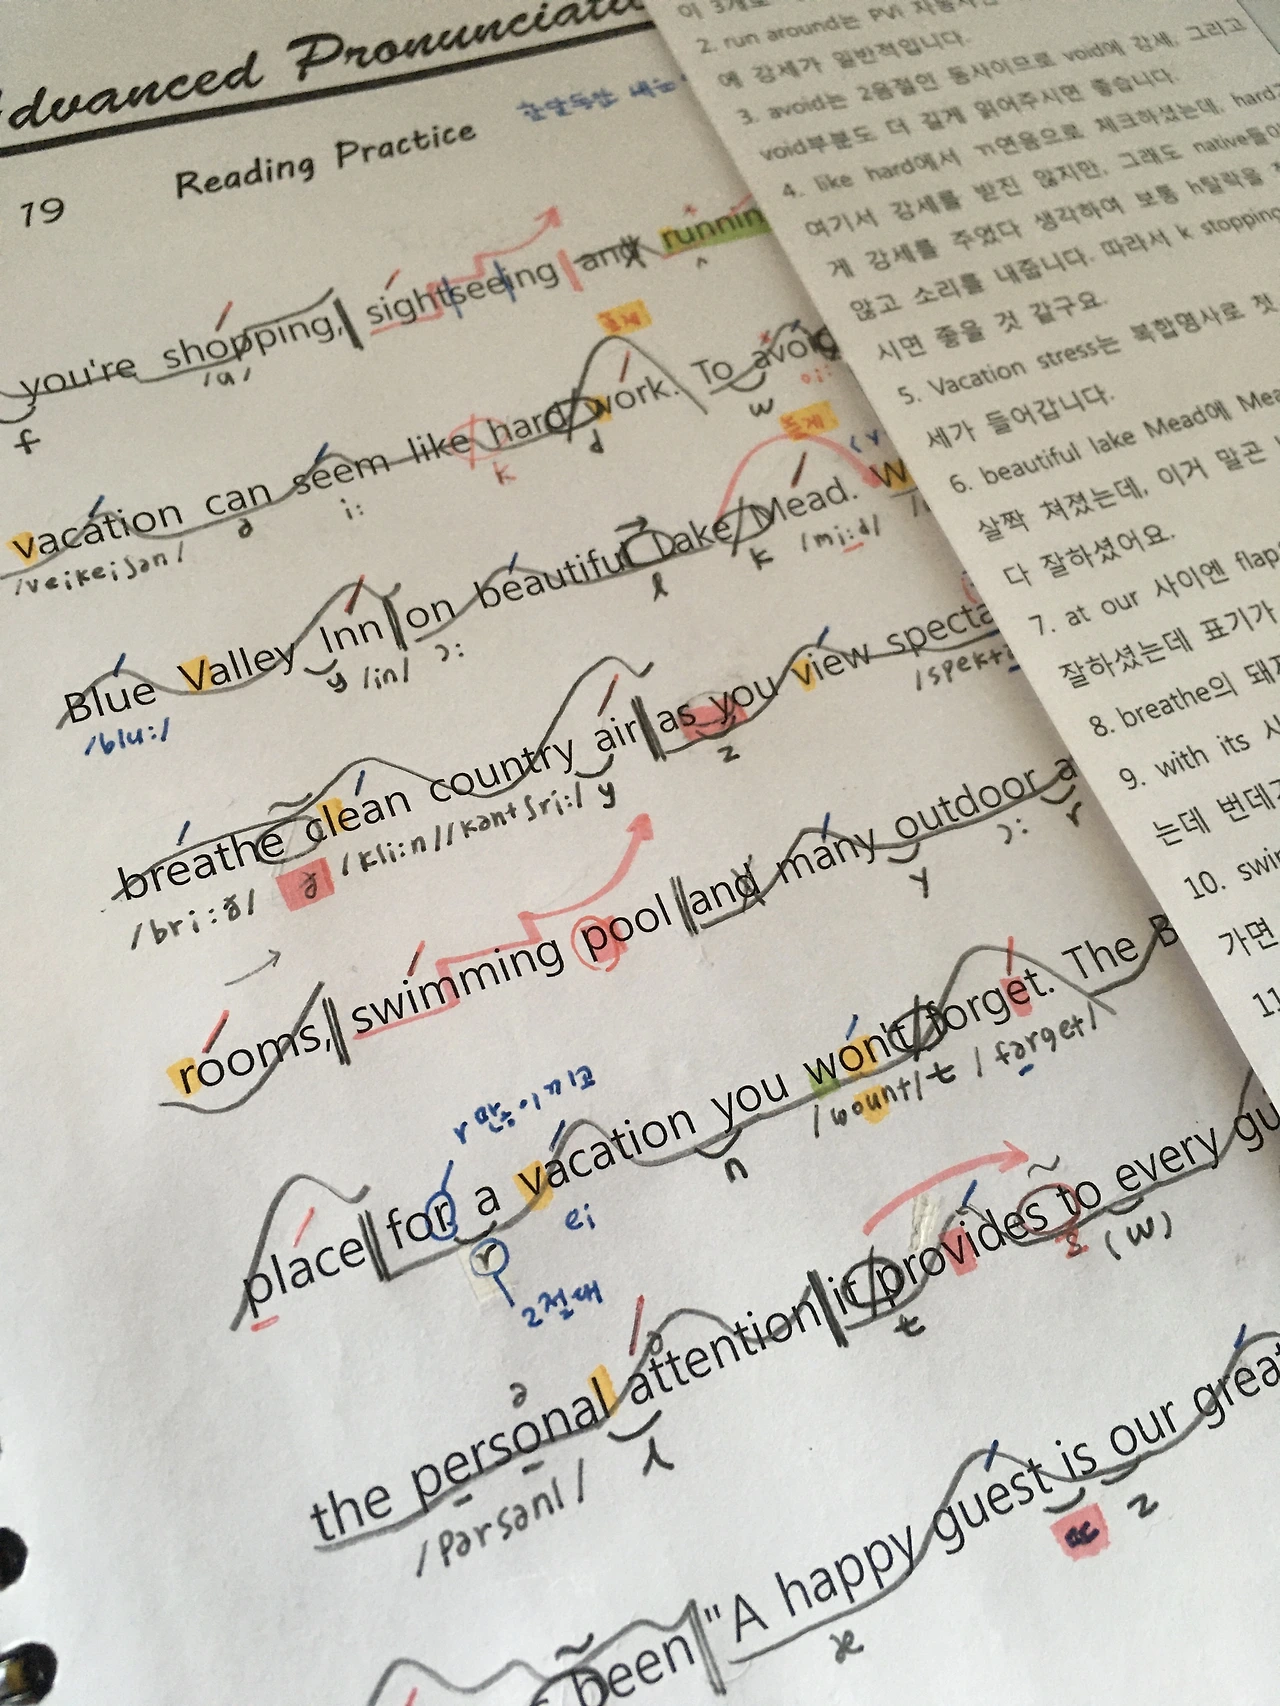 Advanced Pronunciatio
Reading Practice
19
you're shopping, sightseeing and runnin
/a/
f
vacation can seem like hard work. To avoid
/veikeiʃən/ ə i: k d w
Blue Valley Inn on beautiful Lake Mead. W
/blu:/ y /in/ ɔ: l k /mi:d/
breathe clean country air as you view specta
/bri:ð/ ð /kli:n/ /kʌntʃri:/ y z
rooms, swimming pool and many outdoor a
y ɔ: r
place for a vacation you won't forget. The B
r ei n /wount/ t /fərget/
the personal attention it provides to every gu
ə /pərsənl/ l t (w)
been "A happy guest is our great
æ z
이 3개로
2. run around는
에 강세가 일반적입니다.
3. avoid는 2음절인 동사이므로 void에 강세, 그리고
void부분도 더 길게 읽어주시면 좋습니다.
4. like hard에서 ㄲ연음으로 체크하셨는데, hard가
여기서 강세를 받진 않지만, 그래도 native들이
게 강세를 주었다 생각하여 보통 h탈락을
않고 소리를 내줍니다. 따라서 k stopping
시면 좋을 것 같구요.
5. Vacation stress는 복합명사로 첫
세가 들어갑니다.
6. beautiful lake Mead에 Mea
살짝 쳐졌는데, 이거 말곤
다 잘하셨어요.
7. at our 사이엔 flap
잘하셨는데 표기가
8. breathe의 돼지
9. with its 사
는데 번데기
10. swim
가면
11